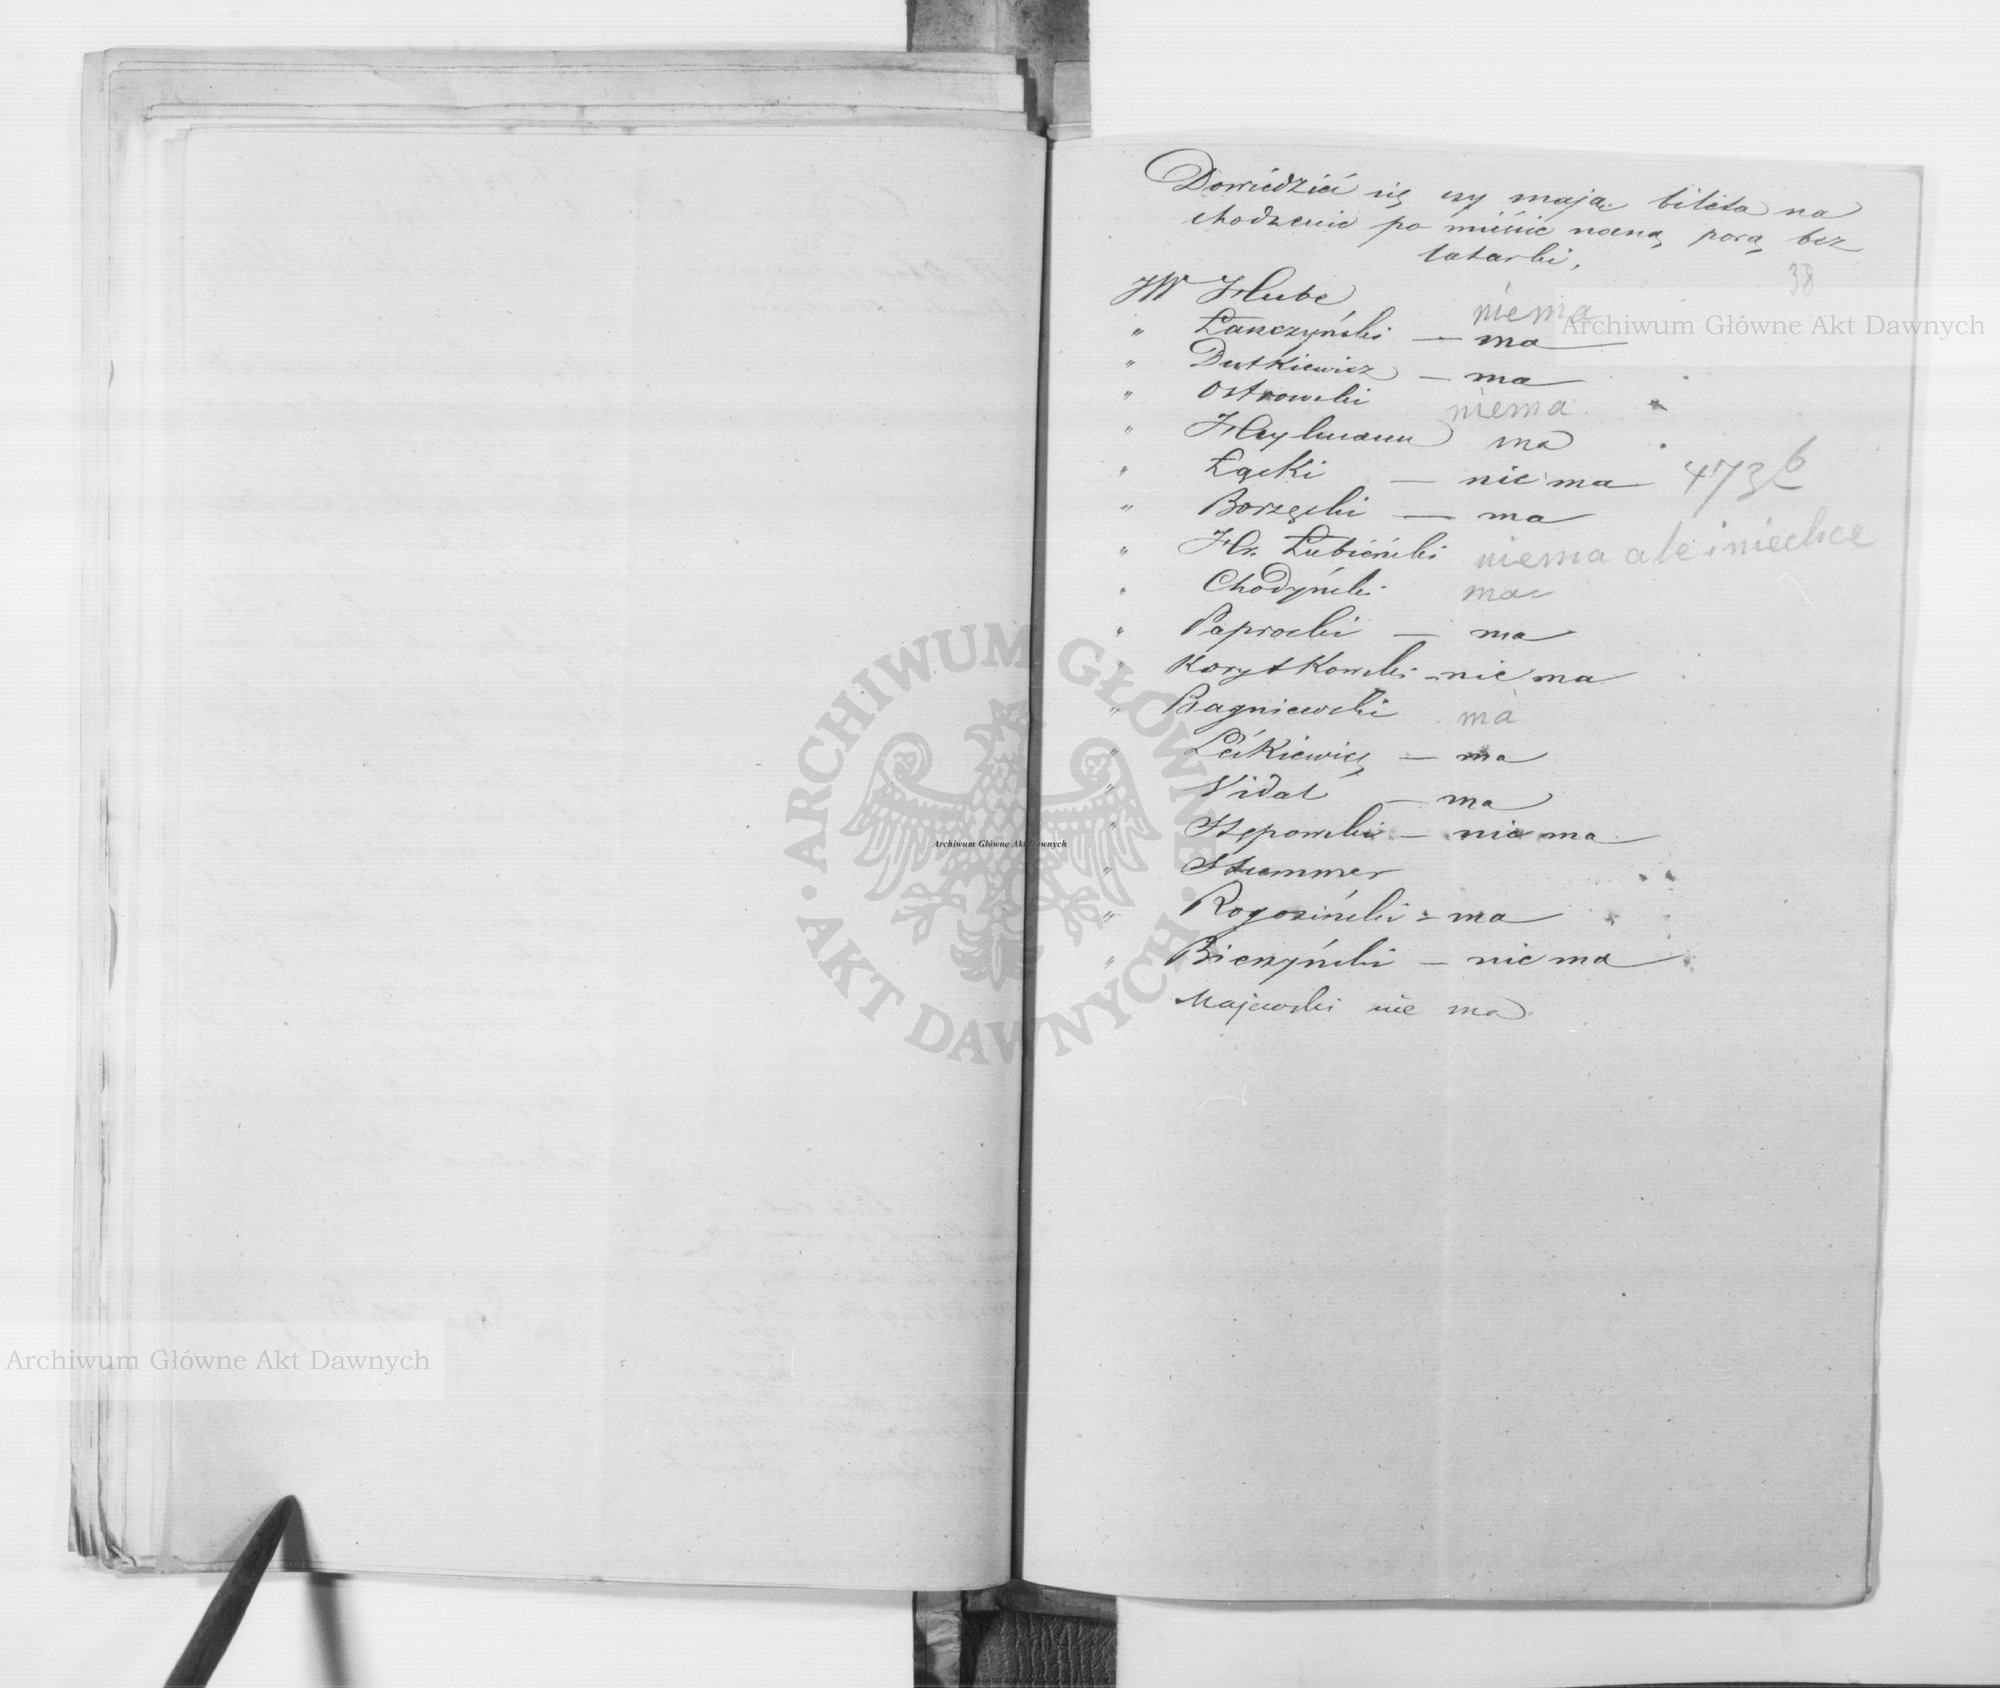 Dowiedzieć się czy mają bileta na
chodzenie po mieście nocną porą bez
latarki.
38
JW Hube niema
" Łaszczyński — ma
" Dutkiewicz — ma
" Ostrowski niema
" Heylmann ma
" Łącki — nie ma 473 b
" Borzęcki — ma
" Hr. Łubieński niema ale i niechce
" Chodyński ma
" Paprocki — ma
" Korytkowski - nie ma
" Bagniewski ma
" Leśkiewicz — ma
" Vidal — ma
" Stępowski — nie ma
" Stummer
" Rogoziński - ma
" Bieczyński — nie ma
Majewski nie ma
Archiwum Główne Akt Dawnych
Archiwum Główne Akt Dawnych
Archiwum Główne Akt Dawnych
ARCHIWUM GŁÓWNE · AKT DAWNYCH ·